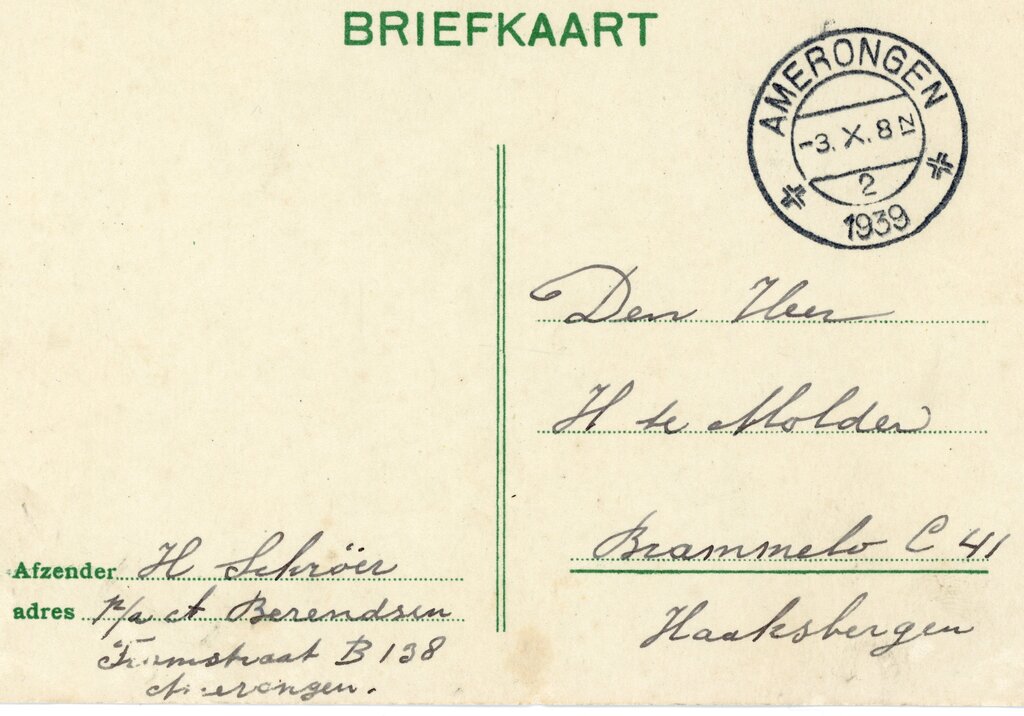 BRIEFKAART
AMERONGEN
-3.X.8 N
2
1939
Den Heer
H te Molder
Brammelo C 41
Haaksbergen
Afzender H Schröer
adres p/a A Berendsen
Tramstraat B 138
Amerongen.